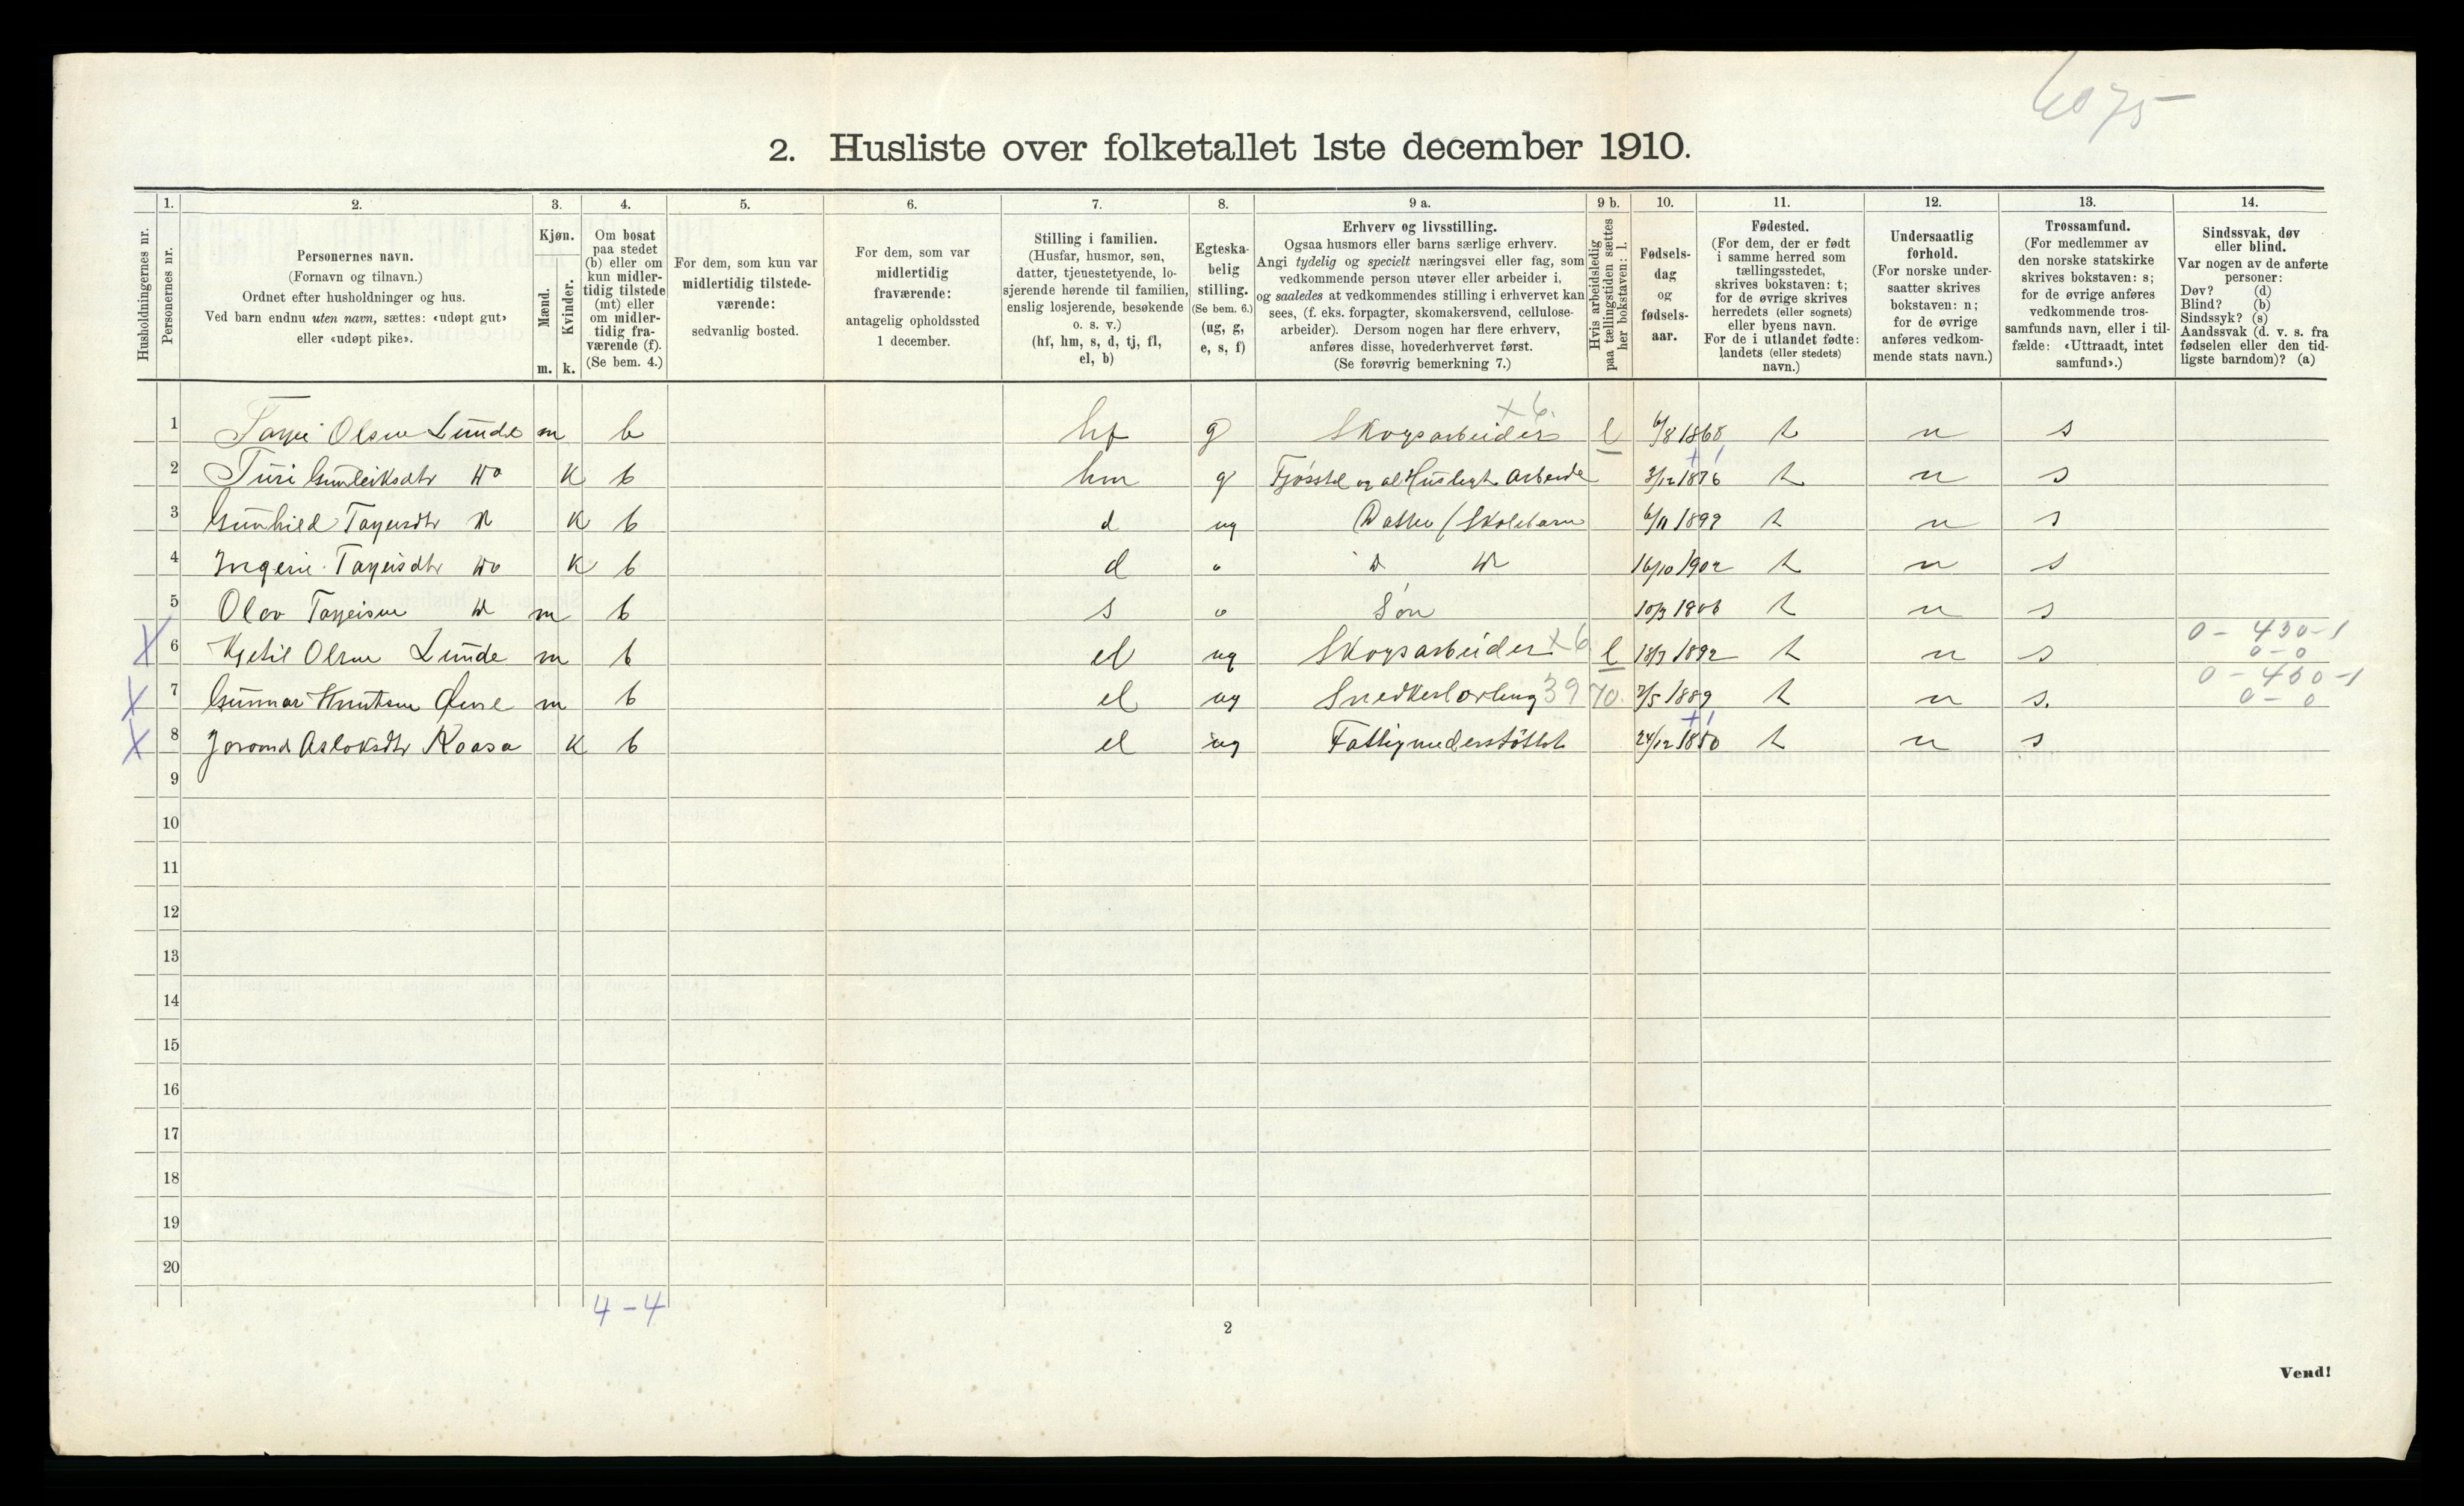 6075
2. Husliste over folketallet 1ste december 1910.
Husholdningernes nr.
1. Personernes nr.
2. Personernes navn.
(Fornavn og tilnavn.)
Ordnet efter husholdninger og hus.
Ved barn endnu uten navn, sættes: «udøpt gut»
eller «udøpt pike».
3. Kjøn.
Mænd. Kvinder.
m. k.
4. Om bosat
paa stedet
(b) eller om
kun midler-
tidig tilstede
(mt) eller
om midler-
tidig fra-
værende (f).
(Se bem. 4.)
5. For dem, som kun var
midlertidig tilstede-
værende:
sedvanlig bosted.
6. For dem, som var
midlertidig
fraværende:
antagelig opholdssted
1 december.
7. Stilling i familien.
(Husfar, husmor, søn,
datter, tjenestetyende, lo-
sjerende hørende til familien,
enslig losjerende, besøkende
o. s. v.)
(hf, hm, s, d, tj, fl,
el, b)
8. Egteska-
belig
stilling.
(Se bem. 6.)
(ug, g,
e, s, f)
9 a. Erhverv og livsstilling.
Ogsaa husmors eller barns særlige erhverv.
Angi tydelig og specielt næringsvei eller fag, som
vedkommende person utøver eller arbeider i,
og saaledes at vedkommendes stilling i erhvervet kan
sees, (f. eks. forpagter, skomakersvend, cellulose-
arbeider). Dersom nogen har flere erhverv,
anføres disse, hovederhvervet først.
(Se forøvrig bemerkning 7.)
9 b. Hvis arbeidsledig
paa tællingstiden sættes
her bokstaven: l.
10. Fødsels-
dag
og
fødsels-
aar.
11. Fødested.
(For dem, der er født
i samme herred som
tællingsstedet,
skrives bokstaven: t;
for de øvrige skrives
herredets (eller sognets)
eller byens navn.
For de i utlandet fødte:
landets (eller stedets)
navn.)
12. Undersaatlig
forhold.
(For norske under-
saatter skrives
bokstaven: n;
for de øvrige
anføres vedkom-
mende stats navn.)
13. Trossamfund.
(For medlemmer av
den norske statskirke
skrives bokstaven: s;
for de øvrige anføres
vedkommende tros-
samfunds navn, eller i til-
fælde: «Uttraadt, intet
samfund».)
14. Sindssvak, døv
eller blind.
Var nogen av de anførte
personer:
Døv? (d)
Blind? (b)
Sindssyk? (s)
Aandssvak (d. v. s. fra
fødselen eller den tid-
ligste barndom)? (a)
1 Olsen Lunde m b hf g Skogsarbeider x 6. l 6/8 1868 t n s
2 Turi Gunleiksdtr Do k b hm g Fjösstel og al Husligt Arbeide 3/12 1876 t n s
3 Gunhild k b d ug Datter / Skolebarn 6/11 1899 t n s
4 Ingerie k b d " 16/10 1902 t n s
5 Olav m b s " Søn t n s
X 6 Kjetil Olsen Lunde m b el ug Skogsarbeider x 6 l 1892 t n s 0 - 430-1
0-0
X 7 Gunnar Knutsen m b el ug 39 70. 7/5 1889 t n s. 0 - 430-1
0-0
X 8 Jorond Asloksdtr Roasa k b el ug Fattigunderstöttet 24/12 1850 t n s
9
10
11
12
13
14
15
16
17
18
19
20
4-4
2
Vend!